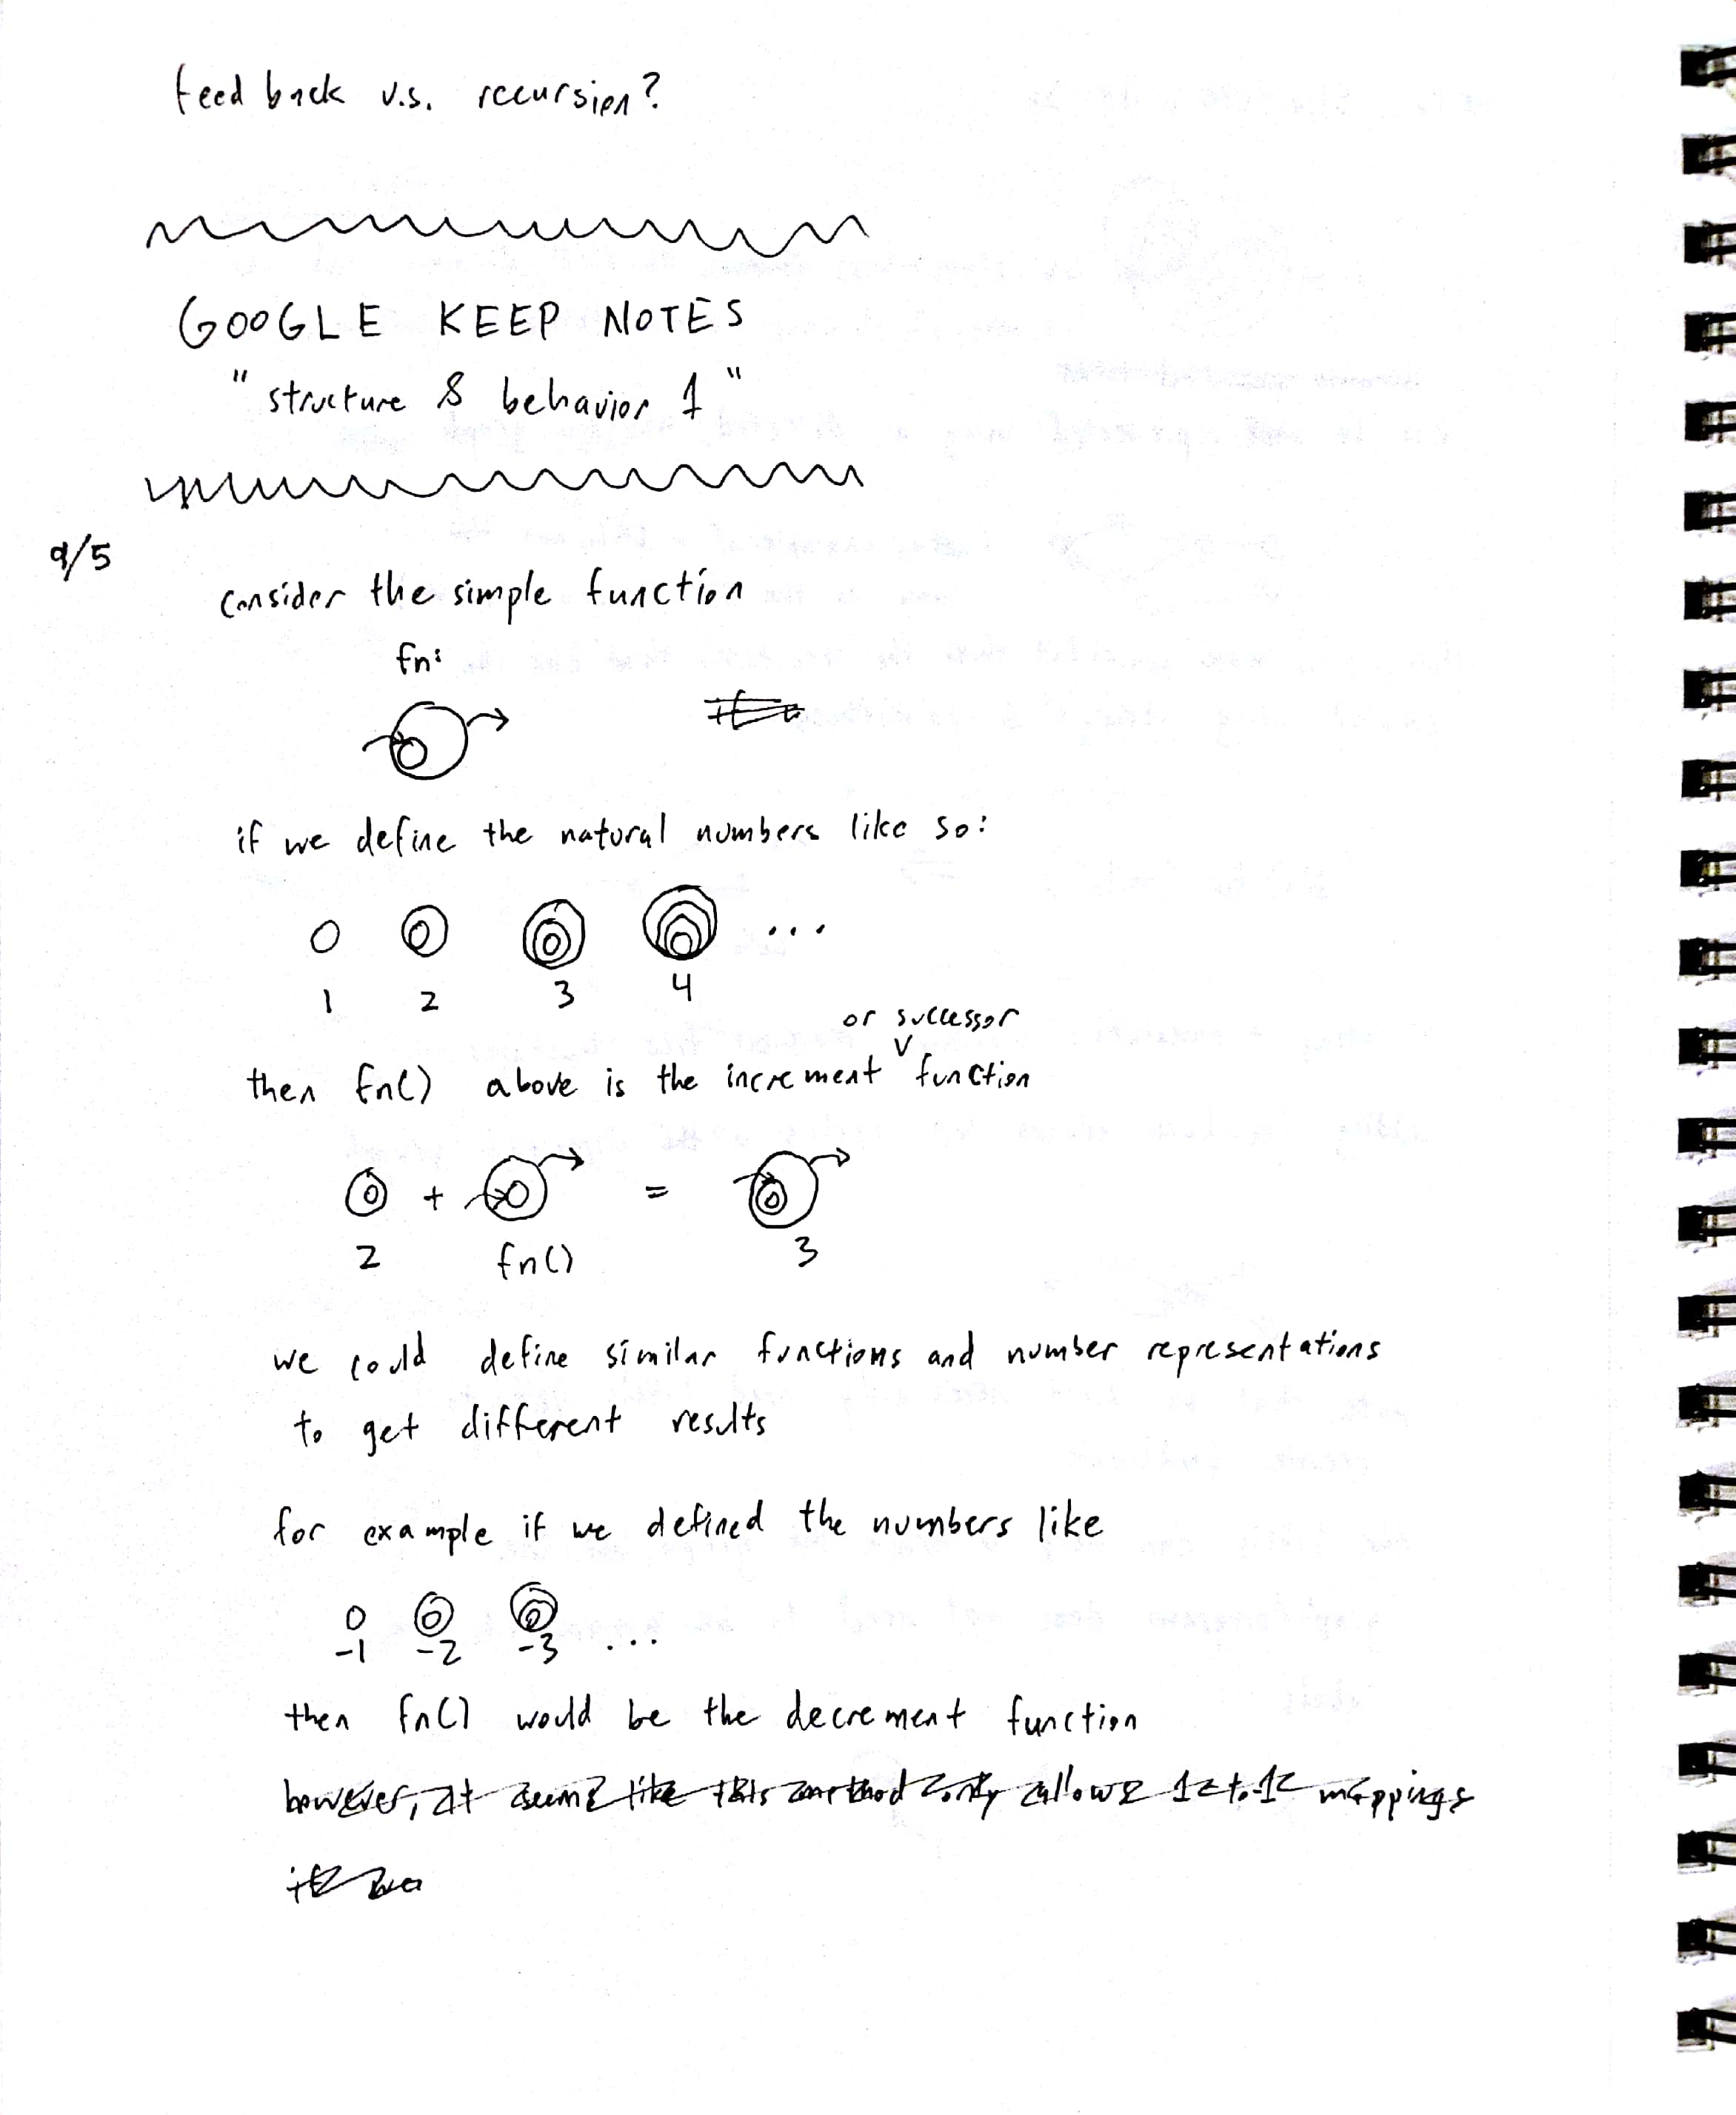 feedback v.s. recursion?
GOOGLE KEEP NOTES
"structure & behavior 1"
9/5
consider the simple function
fn:
if we define the natural numbers like so:
1 2 3 4 ...
or successor
then fn() above is the increment function
+ =
2 fn() 3
we could define similar functions and number representations
to get different results
for example if we defined the numbers like
-1 -2 -3 ...
then fn() would be the decrement function
however, it seems like this method only allows 1 to 1 mappings